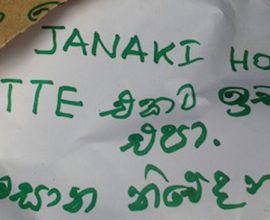 JANAKI HO
TTE එකට ඉ
එපා.
සාන නිවේදන